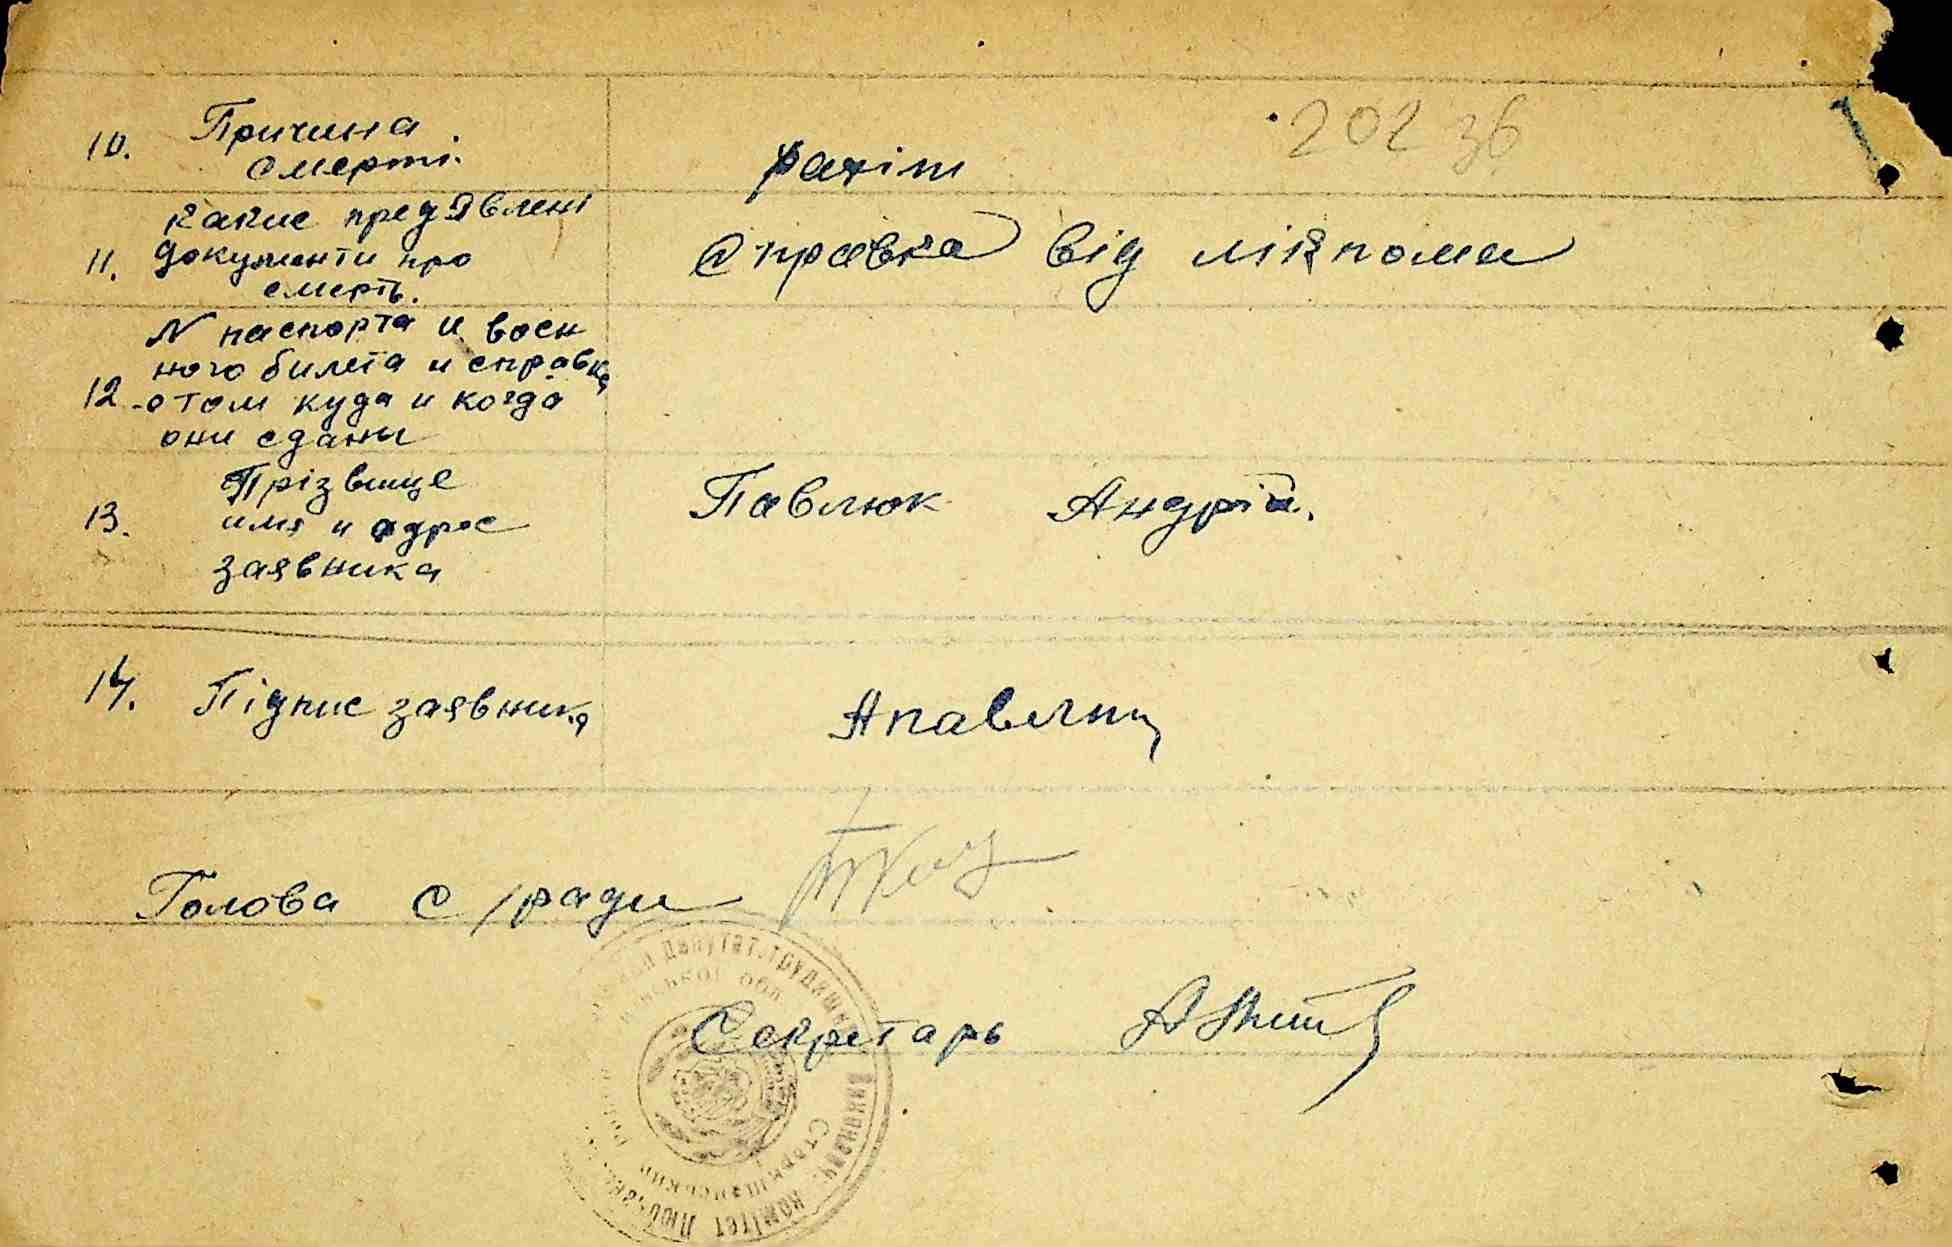 202 зб
10. Причина
смерті.
рахіт
какие предЯвлені
11. документи про
смерть.
Справка від лікпома
N паспорта и воен
ного билета и справка
12. о том куда и когда
они сданы
Прізвище
13. имя и адрес
заявника
Павлюк Андрій.
14. Підпис заявника
Апавлюк
Голова с/ради
Секретарь
депутат. трудящих
ської обл.
Виконавч. комітет